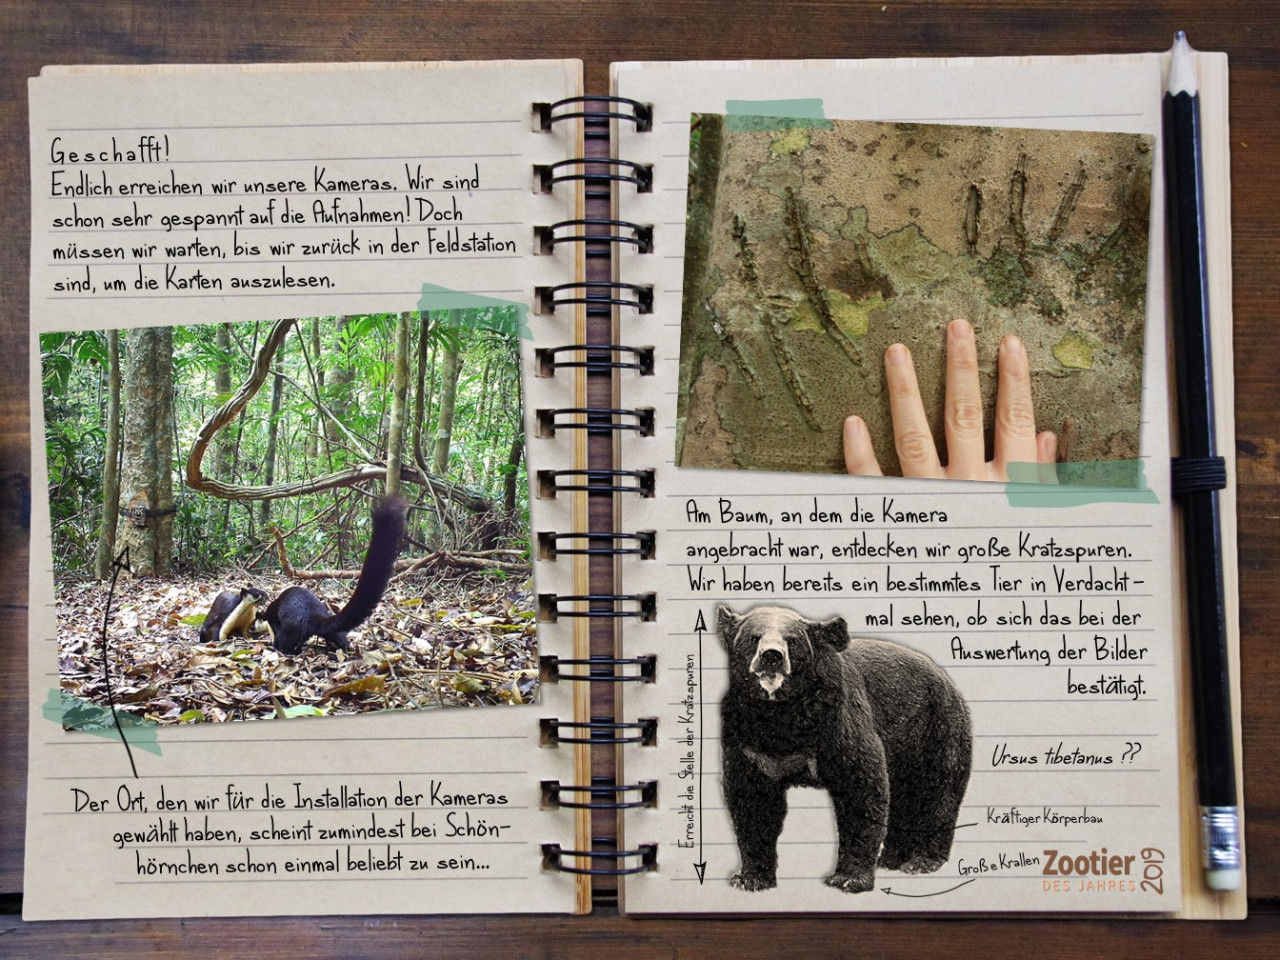 Geschafft!
Endlich erreichen wir unsere Kameras. Wir sind
schon sehr gespannt auf die Aufnahmen! Doch
müssen wir warten, bis wir zurück in der Feldstation
sind, um die Karten auszulesen.
Der Ort, den wir für die Installation der Kameras
gewählt haben, scheint zumindest bei Schön-
hörnchen schon einmal beliebt zu sein...
Am Baum, an dem die Kamera
angebracht war, entdecken wir große Kratzspuren.
Wir haben bereits ein bestimmtes Tier in Verdacht-
mal sehen, ob sich das bei der
Auswertung der Bilder
bestätigt.
Erreicht die Stelle der Kratzspuren
Ursus tibetanus ??
Kräftiger Körperbau
Große Krallen
Zootier
DES JAHRES
2019